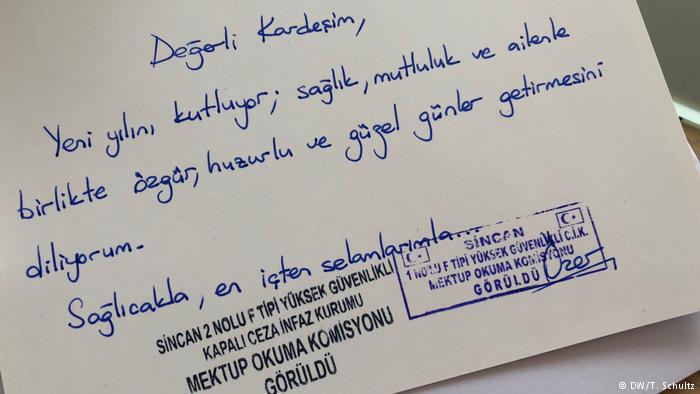 Değerli Kardeşim,
Yeni yılını kutluyor; sağlık, mutluluk ve ailenle
birlikte özgür, huzurlu ve güzel günler getirmesini
diliyorum.
Sağlıcakla, en içten selamlarımla...
SİNCAN
1 NOLU F TİPİ YÜKSEK GÜVENLİKLİ C.İ.K.
MEKTUP OKUMA KOMİSYONU
GÖRÜLDÜ
SİNCAN 2 NOLU F TİPİ YÜKSEK GÜVENLİKLİ
KAPALI CEZA İNFAZ KURUMU
MEKTUP OKUMA KOMİSYONU
GÖRÜLDÜ
© DW/T. Schultz